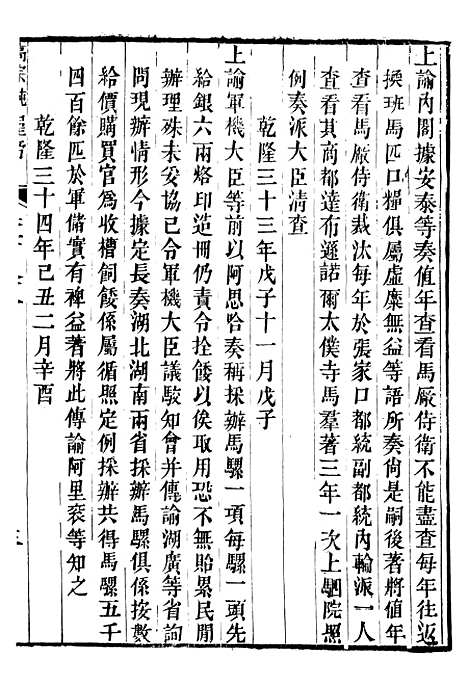 上諭內閣據安泰等奏值年查看馬厰侍衛不能盡查每年往返
換班馬匹口糧俱屬虛糜無益等語所奏尙是嗣後著將值年
查看馬厰侍衛裁汰每年於張家口都統副都統內輪派一人
查看其商都達布遜諾爾太僕寺馬羣著三年一次上駟院照
例奏派大臣淸查
乾隆三十三年戊子十一月戊子
上諭軍機大臣等前以阿思哈奏稱採辦馬騾一項每騾一頭先
給銀六兩烙印造冊仍責令拴餧以俟取用恐不無貽累民閒
辦理殊未妥協已令軍機大臣議駁知會并傳諭湖廣等省詢
問現辦情形今據定長奏湖北湖南兩省採辦馬騾俱係按數
給價購買官爲收槽飼餧係屬循照定例採辦共得馬騾五千
四百餘匹於軍儲實有裨益著將此傳諭阿里袞等知之
乾隆三十四年己丑二月辛酉
高宗純皇帝